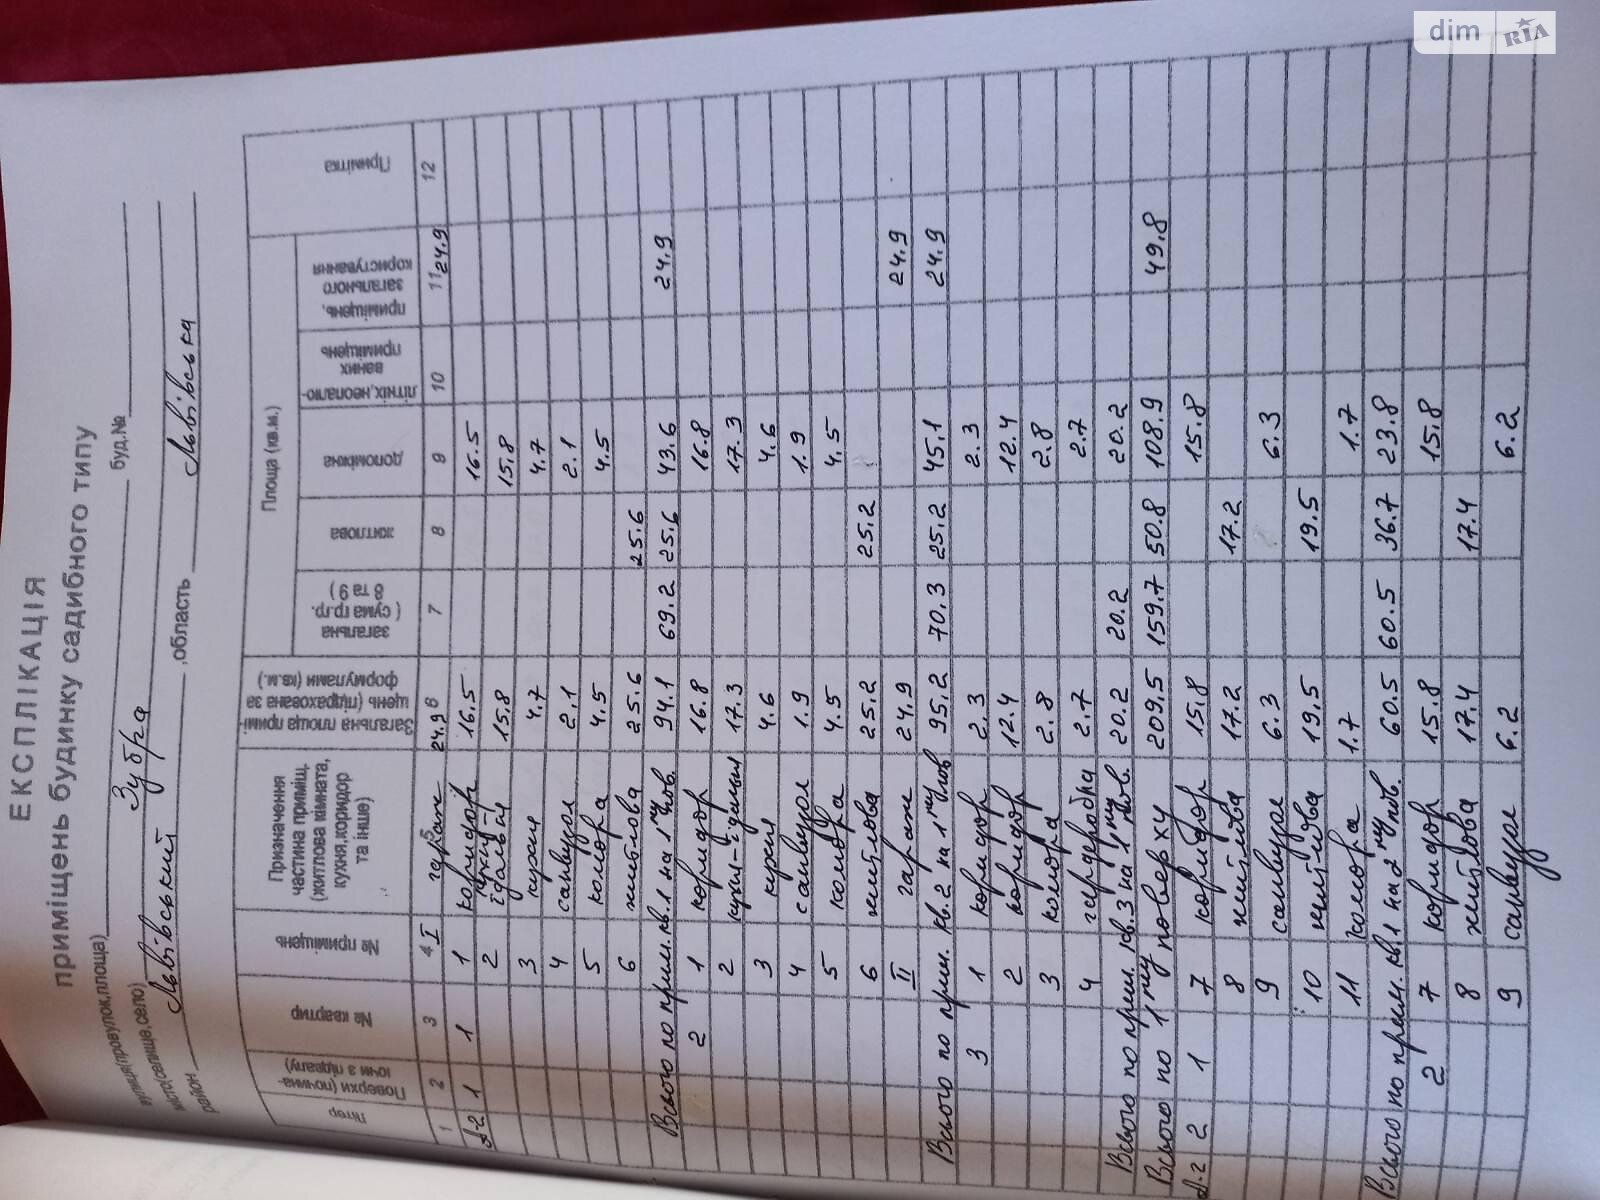 ЕКСПЛІКАЦІЯ
приміщень будинку садибного типу
вулиця(провулок,площа) буд.№
місто(селище,село) Зубра
район Львівський ,область Львівська
Літер
Поверхи (почина-
ючи з підвалу)
№ квартир
№ приміщень
Призначення
частина приміщ,
(житлова кімната,
кухня,коридор
та інше)
Загальна площа примі-
щень (підрахована за
формулами (кв.м.)
Площа (кв.м.)
загальна
( сума гр.гр.
8 та 9 )
житлова
допоміжна
літніх,неопалю-
ваних
приміщень
приміщень,
загального
користування
Примітка
1 2 3 4 6 7 8 9 10 11 12
I гараж 24.9 24.9
А-2 1 1 1 коридор 16.5 16.5
2 кухня-їдальня 15.8 15.8
3 кухня 4.7 4.7
4 санвузол 2.1 2.1
5 комора 4.5 4.5
6 житлова 25.6 25.6
Всього по прим. кв.1 на 1му пов. 94.1 69.2 25.6 43.6 24.9
2 1 коридор 16.8 16.8
2 кухня-їдальня 17.3 17.3
3 кухня 4.6 4.6
4 санвузол 1.9 1.9
5 комора 4.5 4.5
6 житлова 25.2 25.2
II гараж 24.9 24.9
Всього по прим. кв.2 на 1му пов 95.2 70.3 25.2 45.1 24.9
3 1 коридор 2.3 2.3
2 коридор 12.4 12.4
3 комора 2.8 2.8
4 гардеробна 2.7 2.7
Всього по прим. кв.3 на 1му пов. 20.2 20.2 20.2
Всього по 1му поверху 209.5 159.7 50.8 108.9 49.8
А-2 2 1 7 коридор 15.8 15.8
8 житлова 17.2 17.2
9 санвузол 6.3 6.3
10 житлова 19.5 19.5
11 комора 1.7 1.7
Всього по прим. кв.1 на 2му пов. 60.5 60.5 36.7 23.8
2 7 коридор 15.8 15.8
8 житлова 17.4 17.4
9 санвузол 6.2 6.2
dim RIA